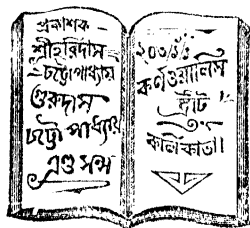 প্রকাশক—
শ্রীহরিদাস
চট্টোপাধ্যায়
গুরুদাস
চট্টোপাধ্যায়
এণ্ড সন্স
২০৩।১।১
কর্নওয়ালিস
ষ্ট্রীট
কলিকাতা।